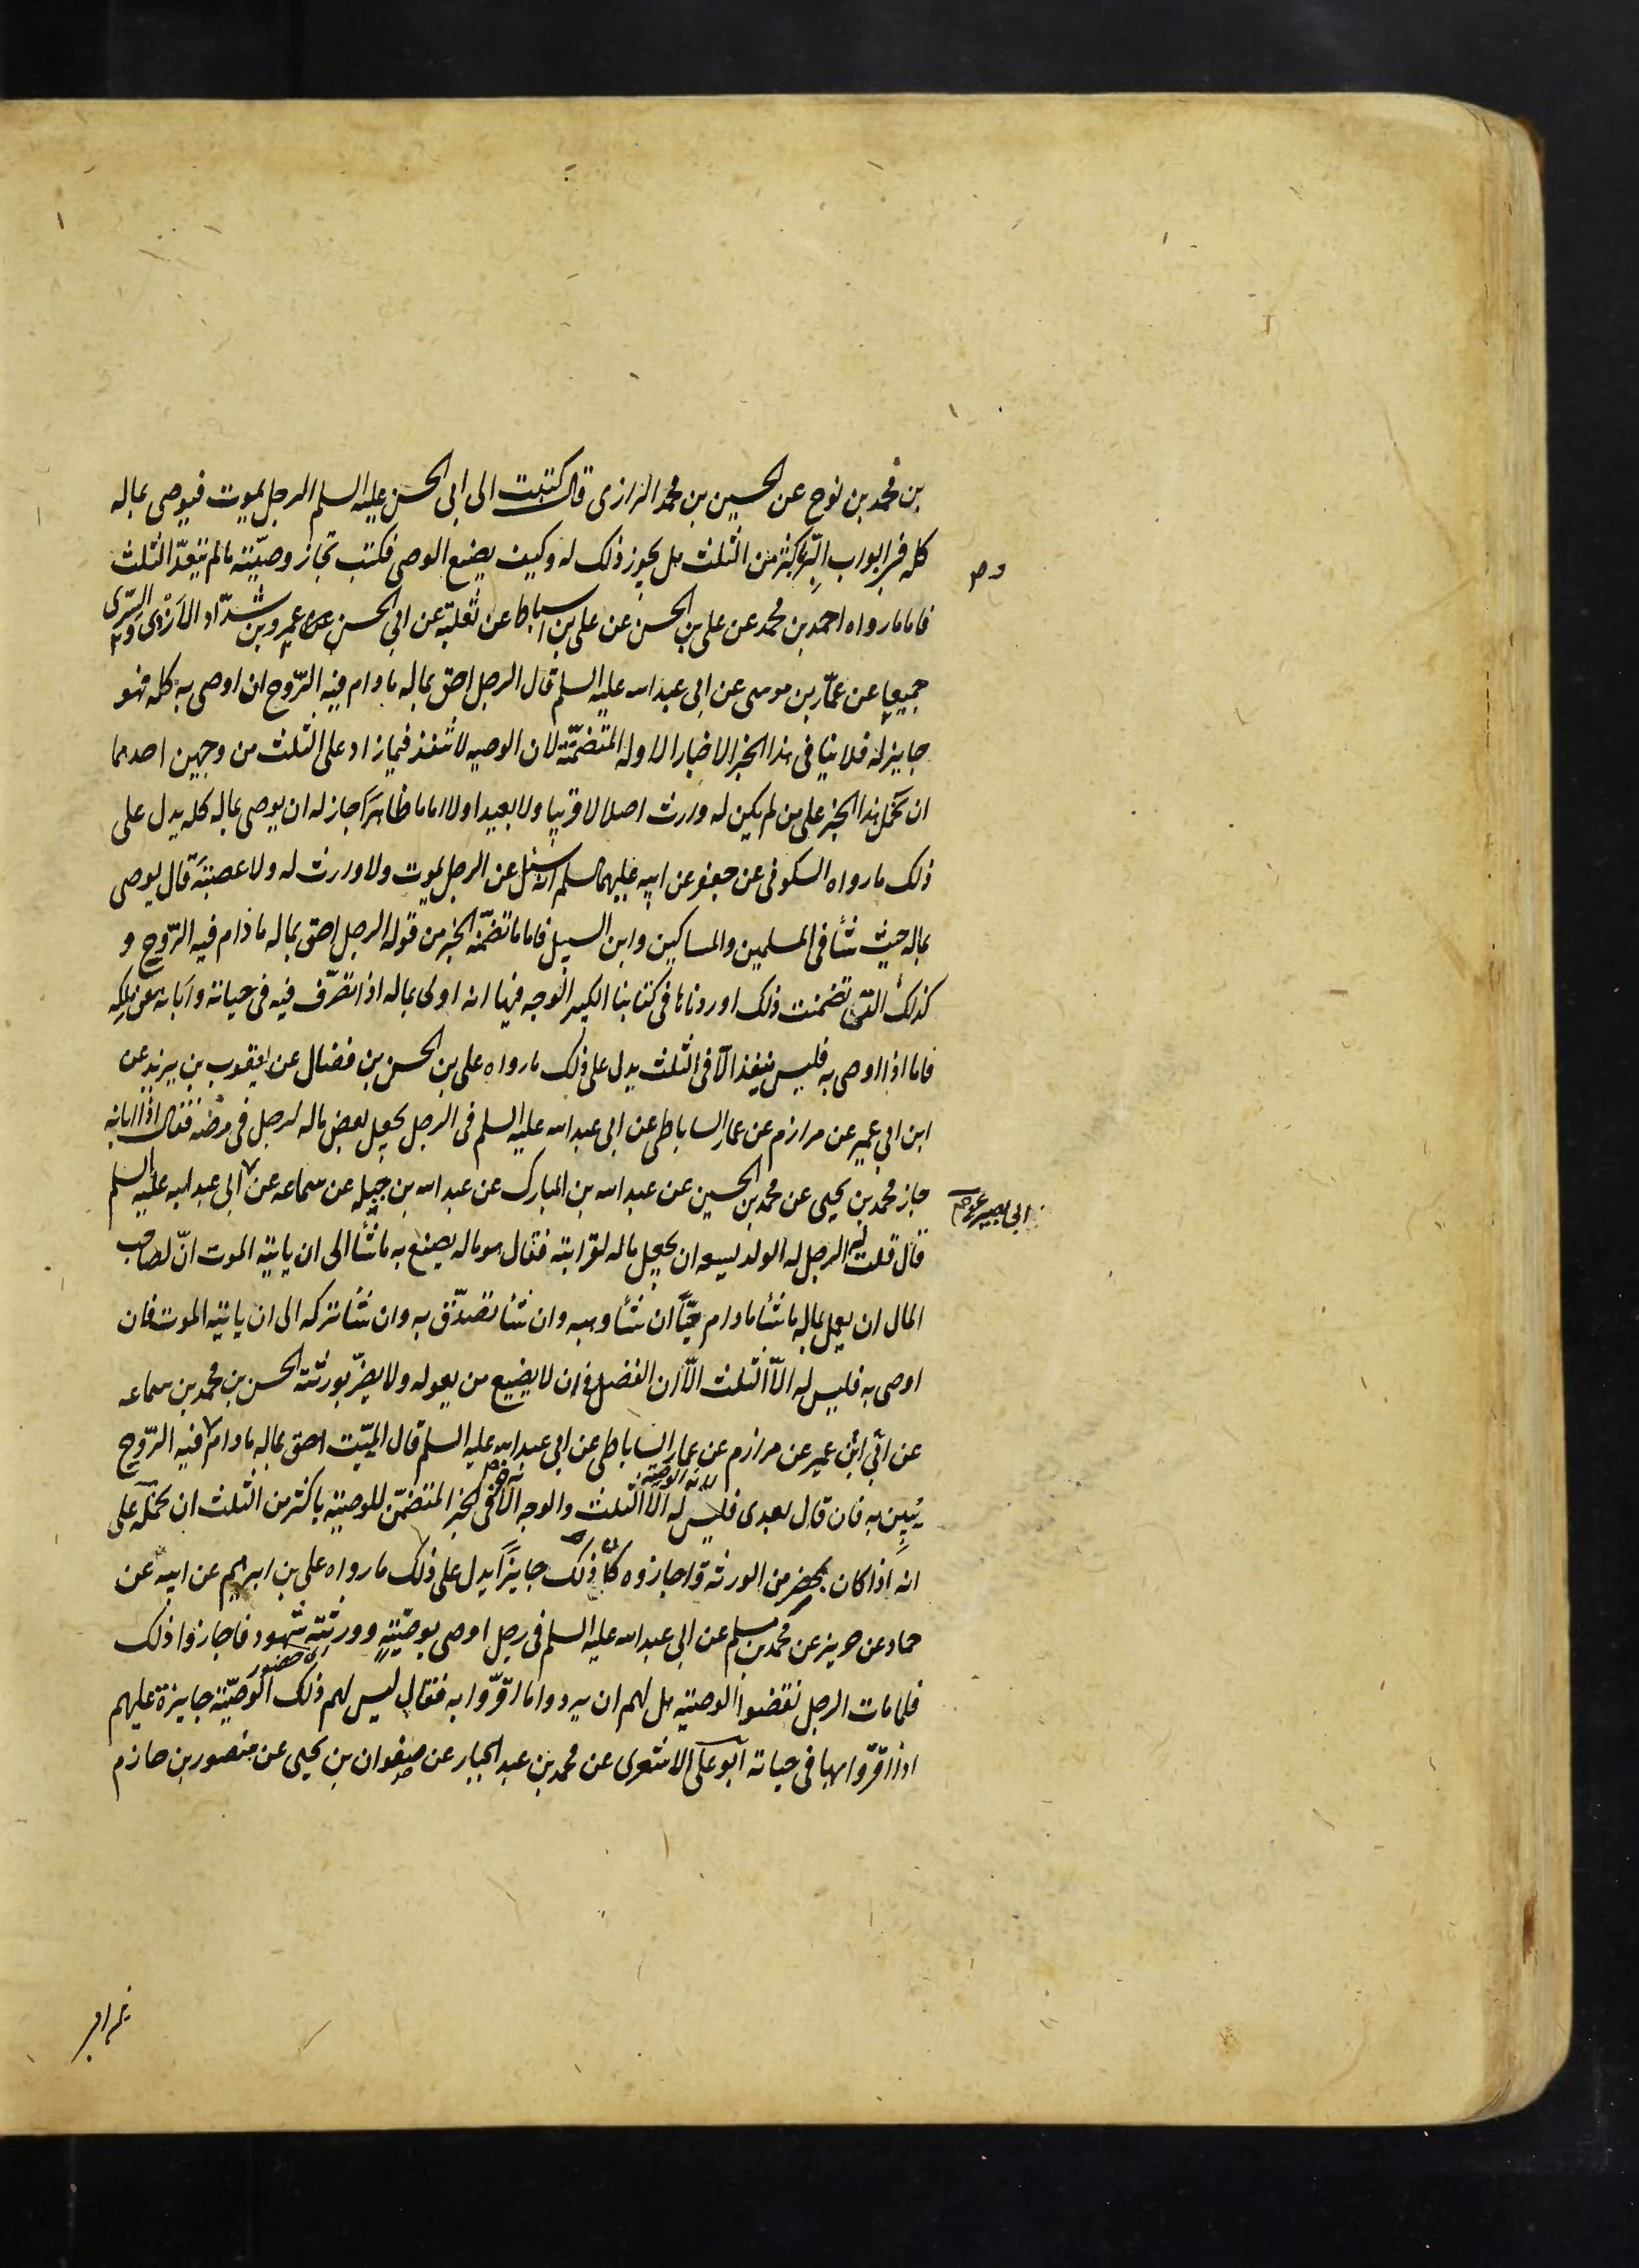 بن محمد بن نوح عن الحسين بن محمد الرازى قال كتبت الى ابى الحسن عليه السلم الرجل يموت فيوصى بماله
كله فى ابواب البرّ باكثر من الثلث هل يجوز ذلك له وكيف يصنع الوصى فكتب تجاز وصيّته مالم يتعدّ الثلث
فاما مارواه احمد بن محمد عن على بن الحسن عن على بن اسباط عن ثعلبة عن ابى الحسن عمرو بن شدّاد الأزدى والسّرى
جميعا عن عمّار بن موسى عن ابى عبد الله عليه السلم قال الرجل احق بماله مادام فيه الرّوح ان اوصى به كله فهو
جايز له فلا ينافى هذا الخبر الاخبار الاوله المتضمّنة لان الوصيه لا تنفذ فيما زاد على الثلث من وجهين احدهما
ان نحمل هذا الخبر على من لم يكن له وارث اصلا لا قريبا ولا بعيدا ولا اماما ظاهرًا جاز له ان يوصى بماله كله يدل على
ذلك مارواه السكونى عن جعفر عن ابيه عليهما السلم انه سئل عن الرجل يموت ولا وارث له ولا عصبةَ قال يوصى
بماله حيث شأ فى المسلمين والمساكين وابن السبيل فاما ما تضمّنه الخبر من قوله الرجل احق بماله مادام فيه الرّوح و
كذلك التى تضمنت ذلك اوردناها فى كتابنا الكبير الوجه فيها انه اولى بماله اذا تصرّف فيه فى حياته وأبانه من ملكه
فاما اذا اوصى به فليس ينفذ الّا فى الثلث يدل على ذلك مارواه على بن الحسن بن فضال عن يعقوب بن يزيد عن
ابن ابى عمير عن مرازم عن عمار الساباطى عن ابى عبد الله عليه السلم فى الرجل يجعل بعض ماله لرجل فى مرضه فقال اذا ابانه
جاز محمد بن يحيى عن محمد بن الحسين عن عبد الله بن المبارك عن عبد الله بن جبله عن سماعه عن ابى عبد الله عليه السلم
ابى بصير عن
قال قلت له الرجل له الولد يسعه ان يجعل ماله لقرابته فقال هو ماله يصنع به ماشأ الى ان ياتيه الموت انّ لصاحب
المال ان يعمل بماله ماشأ مادام حيّاً ان شأ وهبه وان شأ تصدّق به وان شأ تركه الى ان ياتيه الموت فان
اوصى به فليس له الّا الثلث الّا ان الفضل فى ان لا يضيع من يعوله ولا يضرّ بورثته الحسن بن محمد بن سماعه
عن ابن ابى عمير عن مرازم عن عمار الساباطى عن ابى عبد الله عليه السلم قال الميّت احق بماله مادام فيه الرّوح
يُبِين به فان قال بعدى فليس له الّا الثلث والوجه الآخر فى الخبر المتضمّن للوصيّة باكثر من الثلث ان نحمله على
انه اذا كان بمحضر من الورثه واجازوه كان ذلك جايزًا يدل على ذلك مارواه على بن ابرهيم عن ابيه عن
حماد عن حريز عن محمد بن مسلم عن ابى عبد الله عليه السلم فى رجل اوصى بوصيّةٍ وورثته شهود فاجازوا ذلك
فلما مات الرجل نقضوا الوصيّة هل لهم ان يردوا ما اقرّوا به فقال ليس لهم ذلك الوصيّة جايزة عليهم
اذا اقرّوا بها فى حياته ابو على الاشعرى عن محمد بن عبد الجبار عن صفوان بن يحيى عن منصور بن حازم